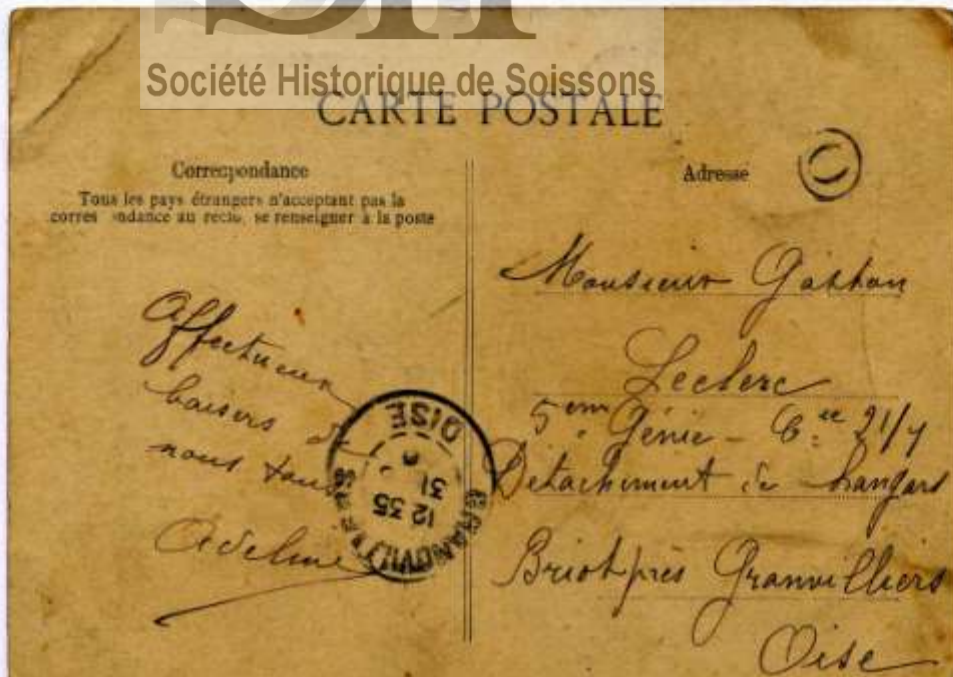 SH
Société Historique de Soissons
CARTE POSTALE
Correspondance
Tous les pays étrangers n'acceptant pas la
corres ondance au recto, se renseigner à la poste
Affectueux
baisers de
nous tous
Adeline
Adresse
Monsieur Gaston
Leclerc
5eme Génie - Cie 21/
Detachement de hangars
Briot près Granvilliers
Oise
GRANDVILLIERS
12 35
31
OISE